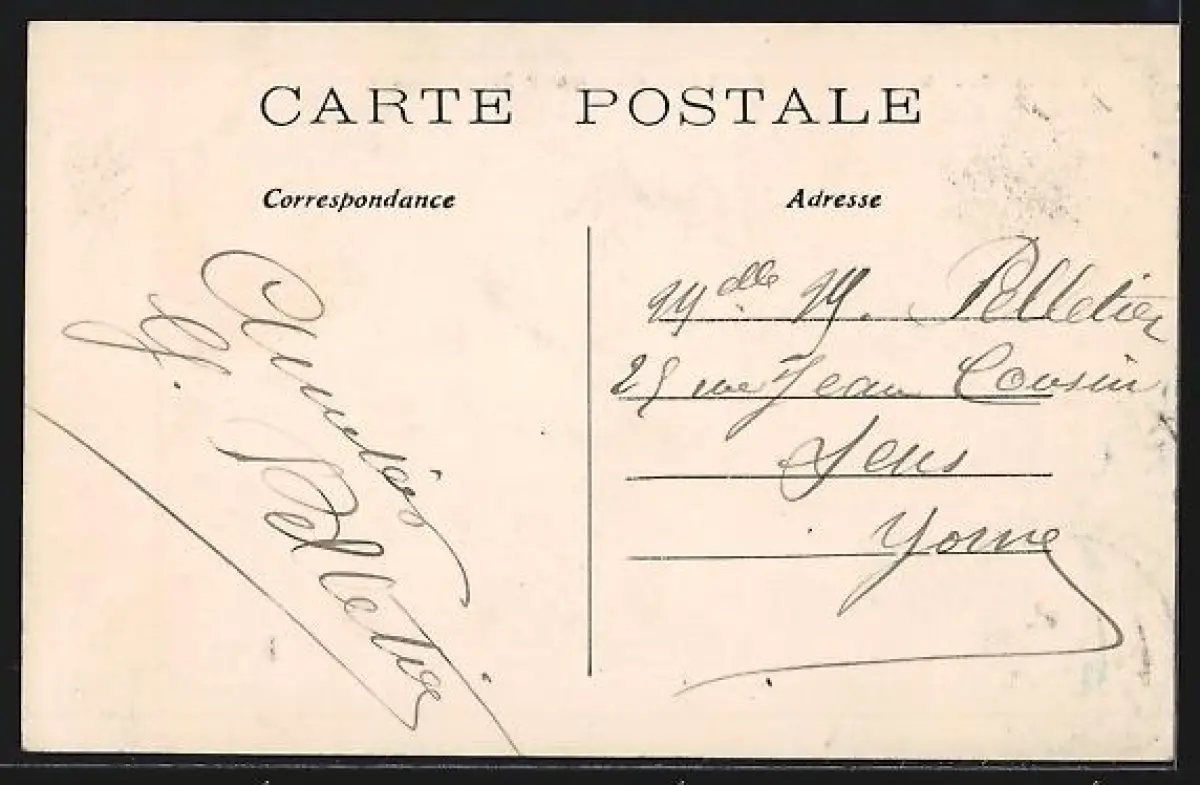 CARTE POSTALE
Correspondance
Adresse
Amitiés
Pelletier
Mdlle M. Pelletier
25 rue Jean Cousin
Sens
Yonne